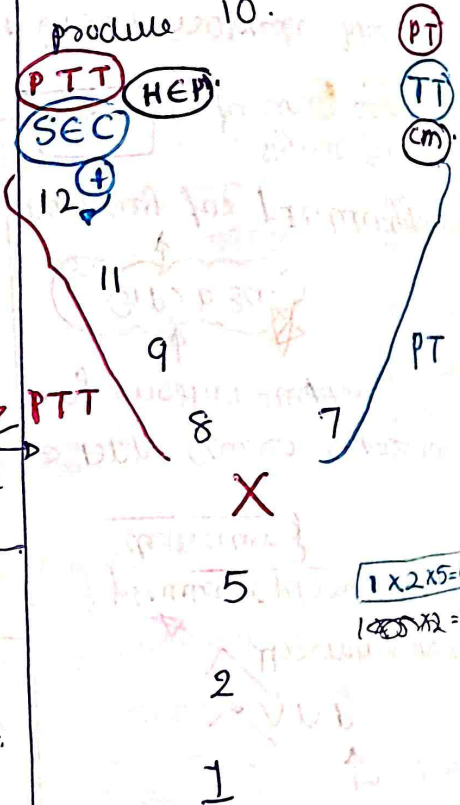 produce 10.
PTT HEP. PT
SEC TT
+ cm.
12
11
9 PT
PTT 8 7
X
5 1x2x5=
x2=
2
1